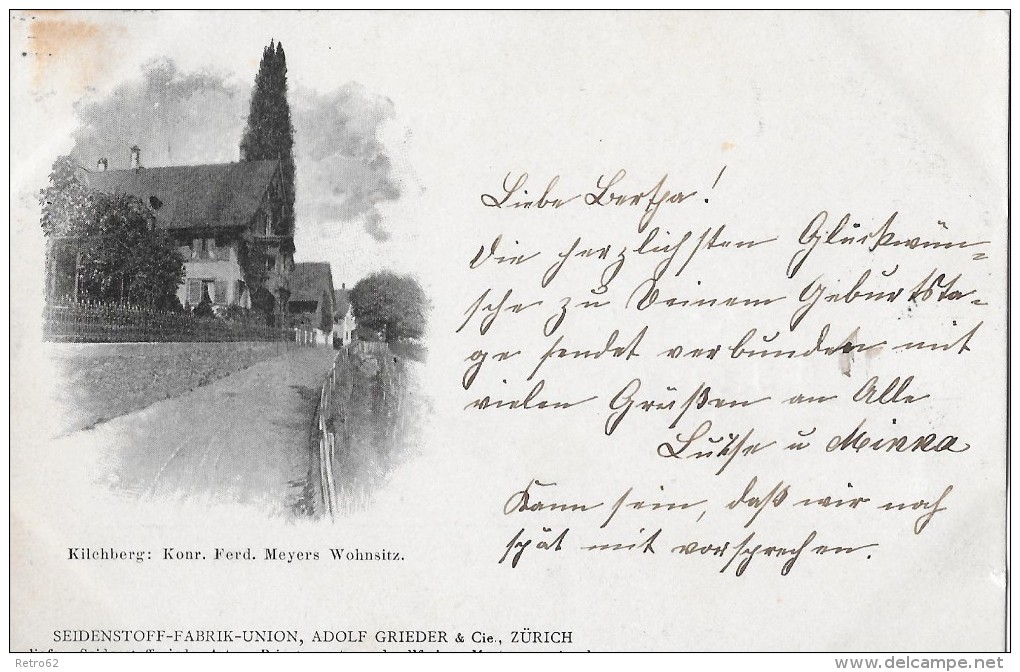 Liebe Bertha!
Die herzlichsten Glückwün-
sche zu Deinem Geburtsta-
ge sendet verbunden mit
vielen Grüßen an Alle
Luise u Minna
Kann sein, daß wir noch
spät mit vorsprechen.
Kilchberg: Konr. Ferd. Meyers Wohnsitz.
SEIDENSTOFF-FABRIK-UNION, ADOLF GRIEDER & Cie., ZÜRICH
Retro62
delcampe.net